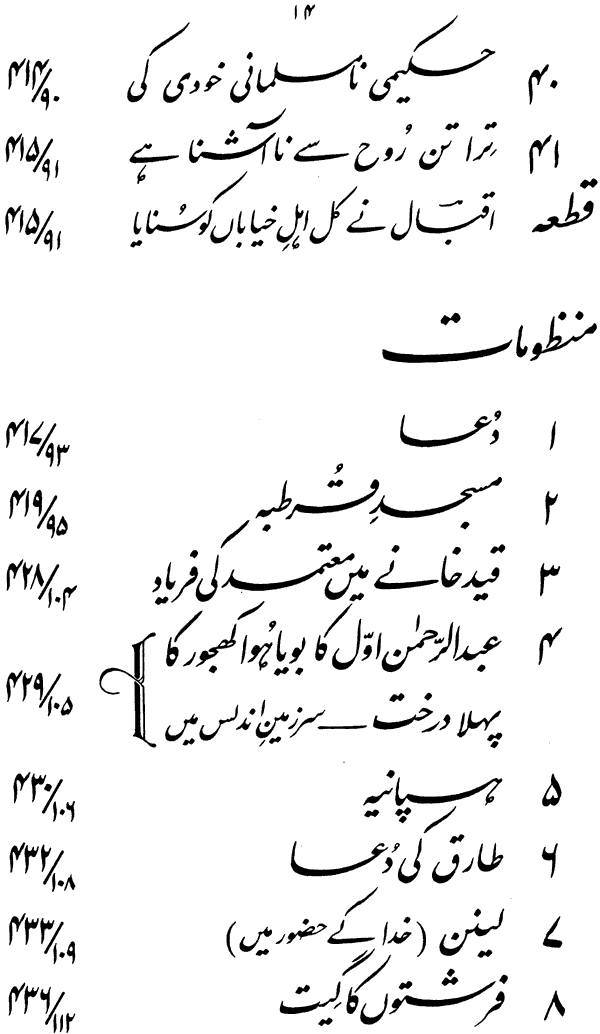 ۱۴
۴۰ حکیمی نامسلمانی خودی کی ۴۱۴/۹۰
۴۱ تِرا تن رُوح سے ناآشنا ہے ۴۱۵/۹۱
قطعہ اقبال نے کل اہلِ خیاباں کو سُنایا ۴۱۵/۹۱
منظومات
۱ دُعا ۴۱۷/۹۳
۲ مسجدِ قُرطبہ ۴۱۹/۹۵
۳ قید خانے میں معتمد کی فریاد ۴۲۸/۱۰۴
۴ عبدالرّحمٰن اوّل کا بویا ہُوا کھجور کا
پہلا درخت — سرزمینِ اندلس میں ۴۲۹/۱۰۵
۵ ہسپانیہ ۴۳۰/۱۰۶
۶ طارق کی دُعا ۴۳۲/۱۰۸
۷ لینن (خدا کے حضور میں) ۴۳۳/۱۰۹
۸ فرشتوں کا گیت ۴۳۶/۱۱۲